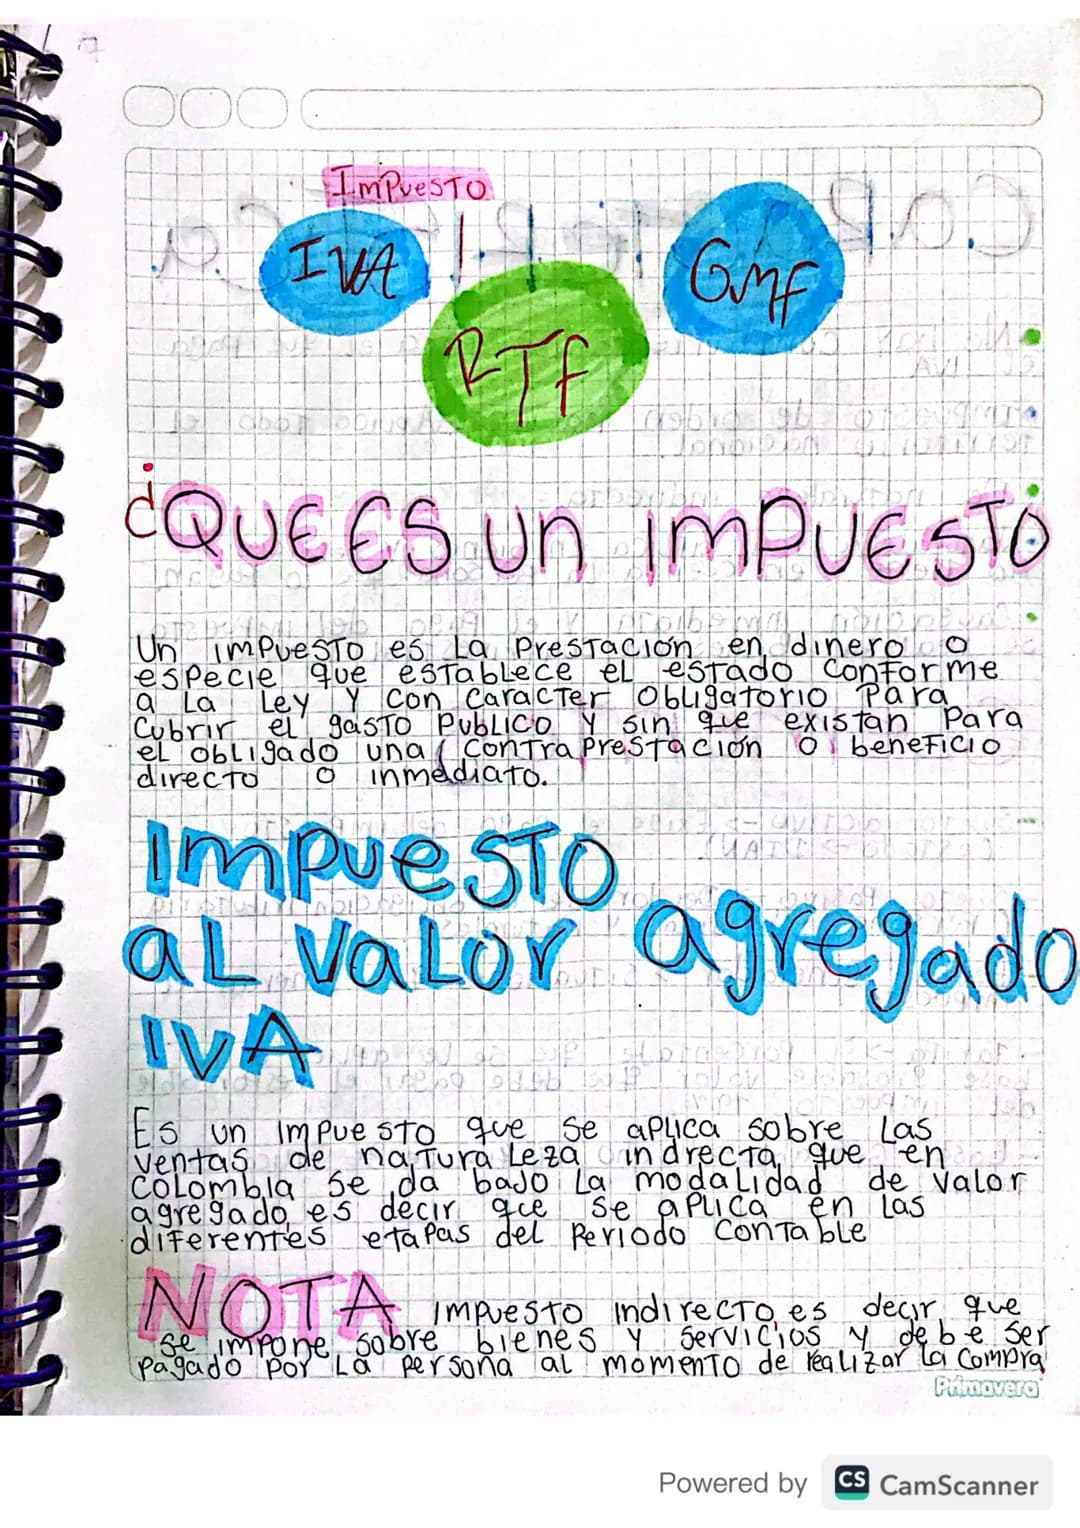 Impuesto
IVA
GMF
RTf
¿QUE ES UN IMPUESTO
Un impuesto es La Prestación en dinero o
especie que establece el estado conforme
a La Ley y con caracter obligatorio Para
Cubrir el gasto Publico y sin que existan Para
el obligado una contraprestación o beneficio
directo o inmediato.
IMPUESTO
al Valor agregado
IVA
Es un impuesto que se aplica sobre Las
ventas de naturaleza indrecta, que en
Colombia se da bajo La modalidad de valor
agregado, es decir que se aplica en las
diferentes etapas del Periodo Contable
NOTA Impuesto indirecto, es decir que
se impone sobre bienes y servicios y debe ser
Pagado por La persona al momento de realizar la compra
Primavera
Powered by CS CamScanner